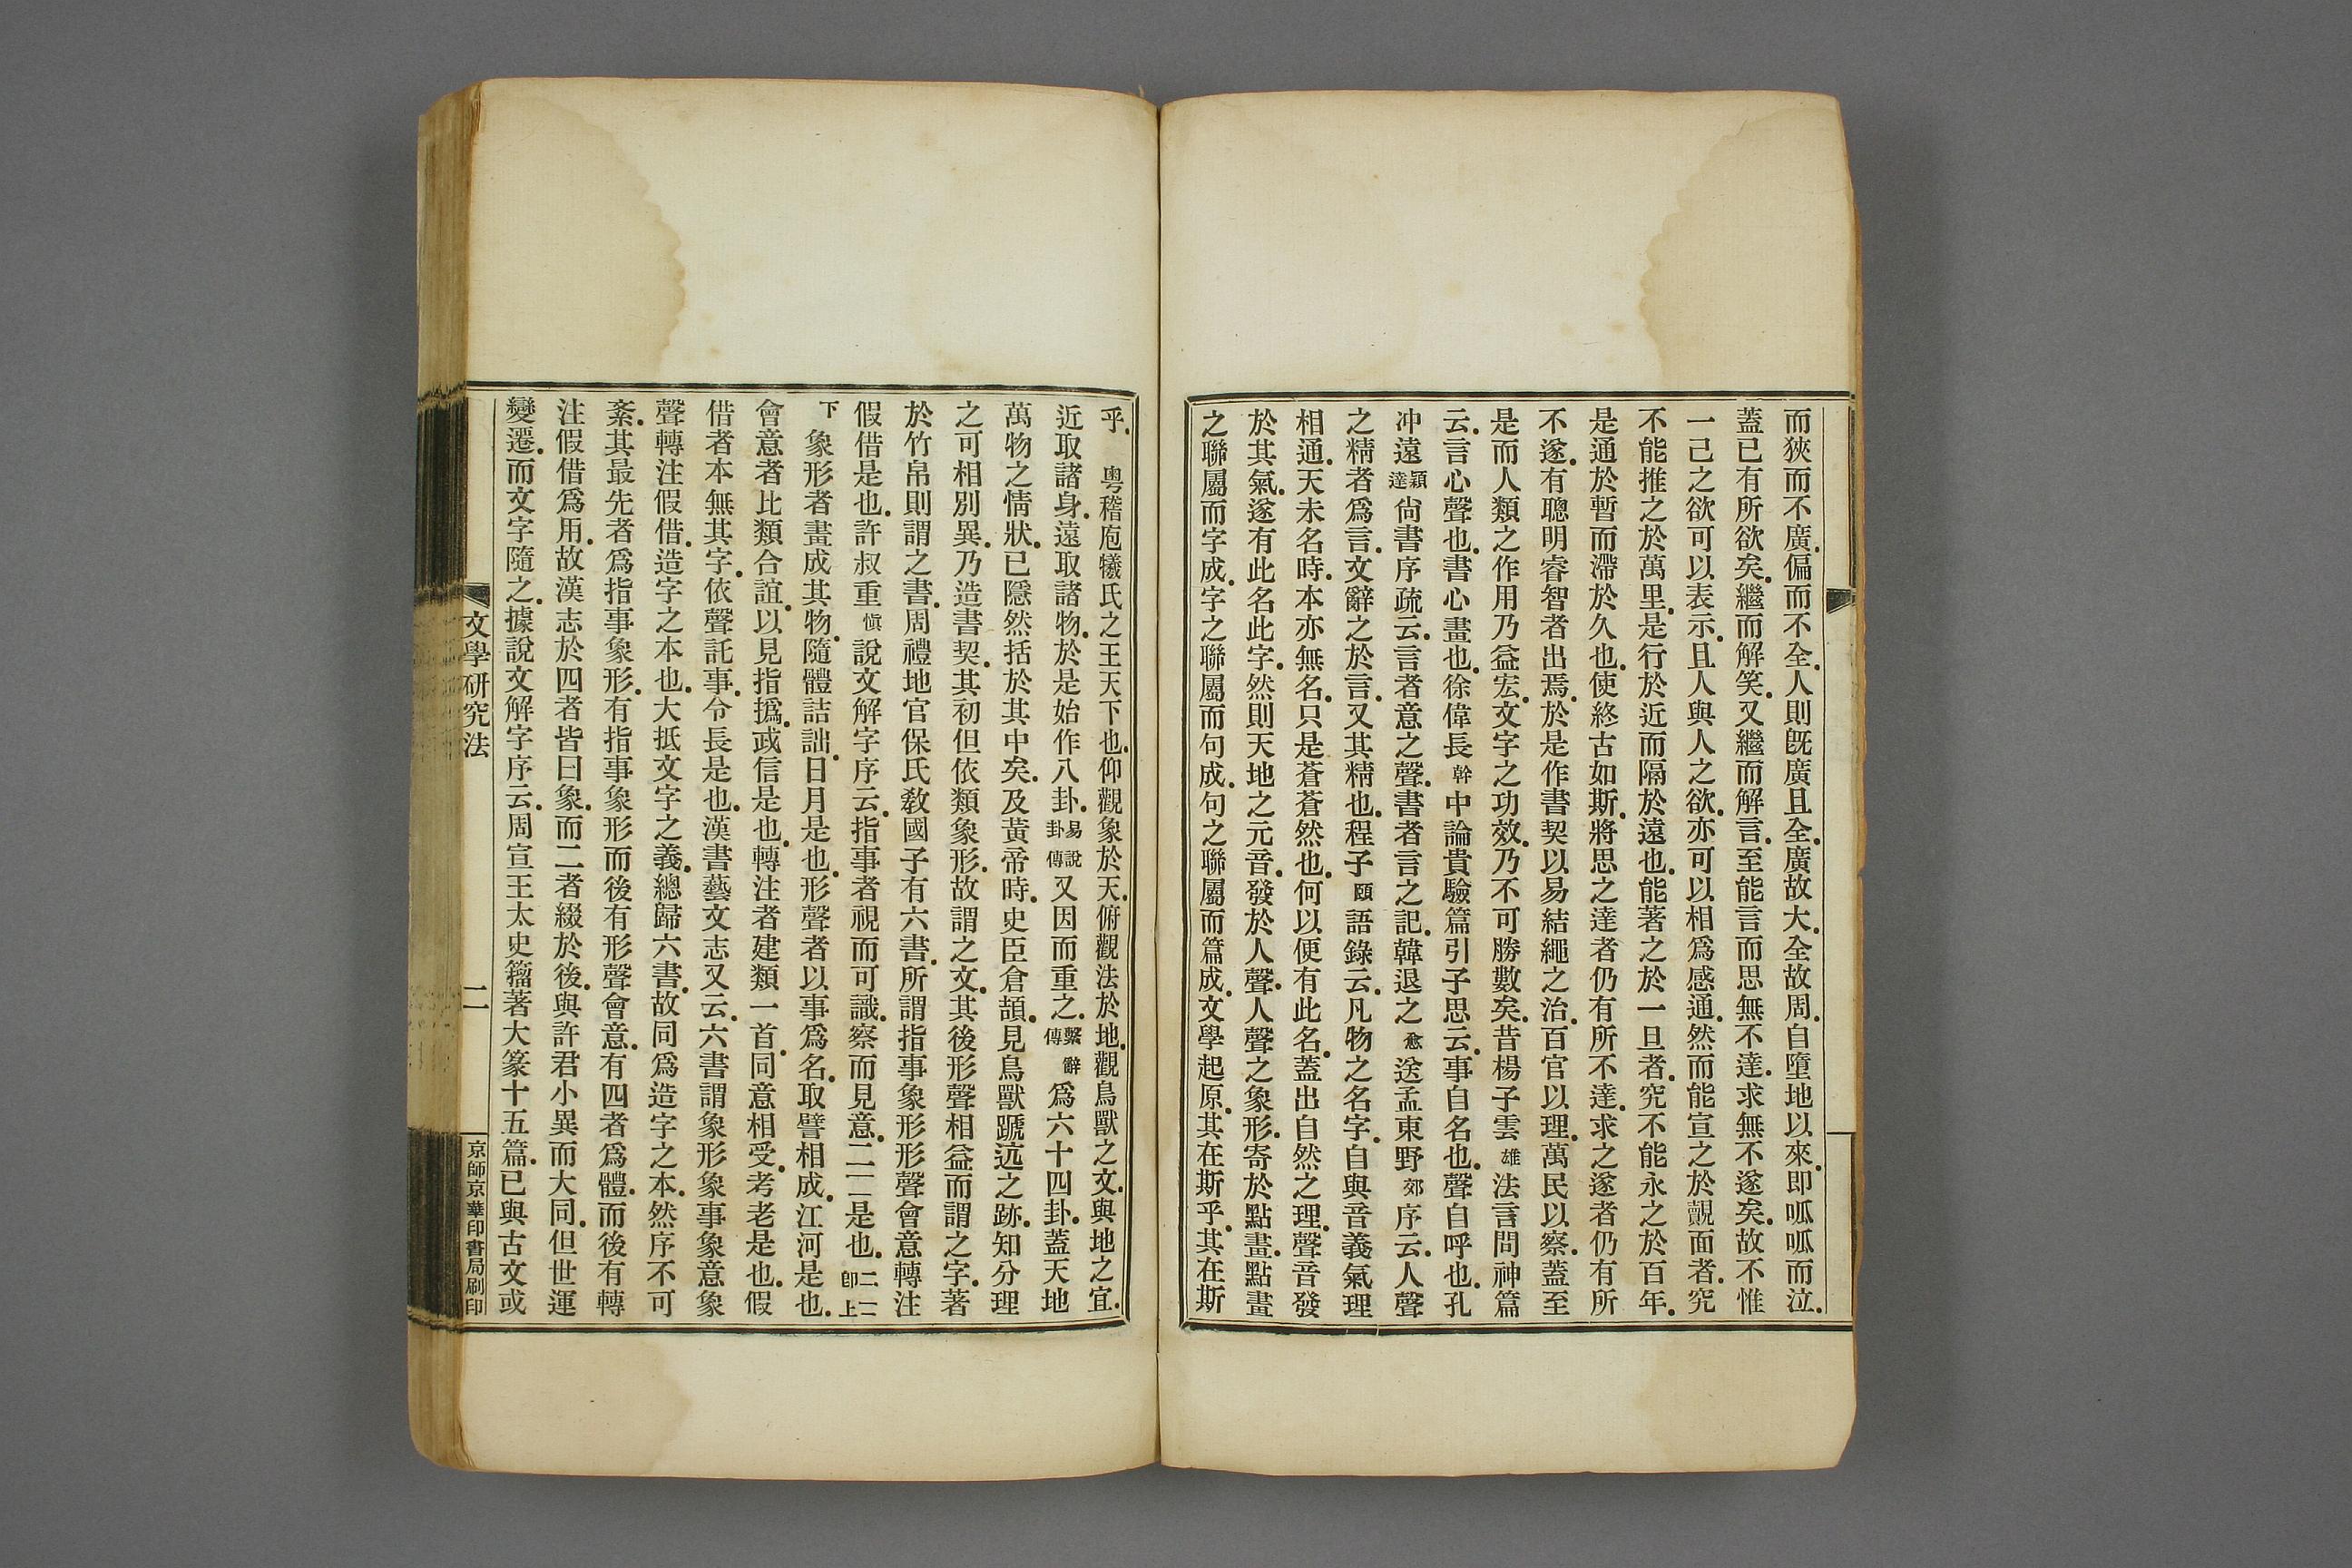 而狹而不廣.偏而不全.人則旣廣且全.廣故大.全故周.自墮地以來.即呱呱而泣.
蓋已有所欲矣.繼而解笑.又繼而解言.至能言而思無不達.求無不遂矣.故不惟
一己之欲可以表示.且人與人之欲.亦可以相爲感通.然而能宣之於覿面者.究
不能推之於萬里.是行於近而隔於遠也.能著之於一旦者.究不能永之於百年.
是通於暫而滯於久也.使終古如斯.將思之達者仍有所不達.求之遂者仍有所
不遂.有聰明睿智者出焉.於是作書契以易結繩之治.百官以理.萬民以察.蓋至
是而人類之作用乃益宏.文字之功效.乃不可勝數矣.昔楊子雲雄法言問神篇
云.言心聲也.書心畫也.徐偉長幹中論貴驗篇引子思云.事自名也.聲自呼也.孔
冲遠穎達尙書序疏云.言者意之聲.書者言之記.韓退之愈送孟東野郊序云.人聲
之精者爲言.文辭之於言.又其精也.程子頤語錄云.凡物之名字.自與音義氣理
相通.天未名時.本亦無名.只是蒼蒼然也.何以便有此名.蓋出自然之理.聲音發
於其氣.遂有此名此字.然則天地之元音.發於人聲.人聲之象形.寄於點畫.點畫
之聯屬而字成.字之聯屬而句成.句之聯屬而篇成.文學起原.其在斯乎.其在斯
乎.　粤稽庖犧氏之王天下也.仰觀象於天.俯觀法於地.觀鳥獸之文.與地之宜.
近取諸身.遠取諸物.於是始作八卦.易說卦傳又因而重之.繫辭傳爲六十四卦.蓋天地
萬物之情狀.已隱然括於其中矣.及黃帝時.史臣倉頡.見鳥獸蹏迒之跡.知分理
之可相別異.乃造書契.其初但依類象形.故謂之文.其後形聲相益而謂之字.著
於竹帛則謂之書.周禮地官保氏敎國子有六書.所謂指事象形形聲會意轉注
假借是也.許叔重愼說文解字序云.指事者視而可識.察而見意.二二是也.二二即上
下象形者畫成其物.隨體詰詘.日月是也.形聲者以事爲名.取譬相成.江河是也.
會意者比類合誼.以見指撝.武信是也.轉注者建類一首.同意相受.考老是也.假
借者本無其字.依聲託事.令長是也.漢書藝文志又云.六書謂象形象事象意象
聲轉注假借.造字之本也.大抵文字之義.總歸六書.故同爲造字之本.然序不可
紊.其最先者爲指事象形.有指事象形而後有形聲會意.有四者爲體.而後有轉
注假借爲用.故漢志於四者皆曰象.而二者綴於後.與許君小異而大同.但世運
變遷.而文字隨之.據說文解字序云.周宣王太史籀著大篆十五篇.已與古文或
文學研究法
二
京師京華印書局刷印